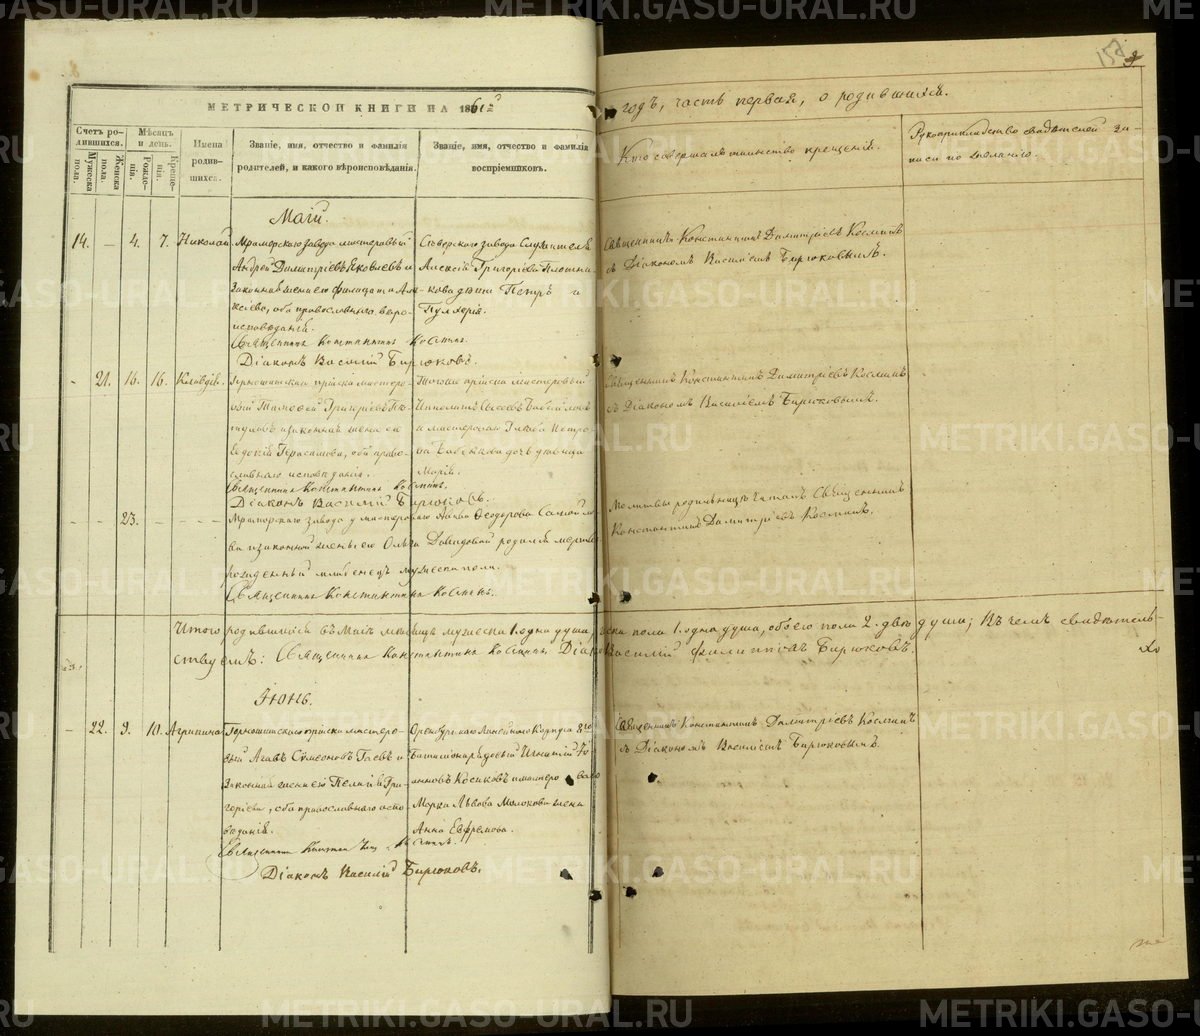 МЕТРИЧЕСКОЙ КНИГИ НА 1861й
годъ, часть первая, о родившихся.
Счетъ ро-
дившихся.
Мужеска
пола.
Женска
пола.
Мѣсяцъ
и день.
Рожде-
нія.
Креще-
нія.
Имена
родив-
шихся.
Званіе, имя, отчество и фамилія
родителей, и какого вѣроисповѣданія.
Званіе, имя, отчество и фамилія
воспріемниковъ.
Кто совершалъ таинство крещенія.
Рукоприкладство свидѣтелей за-
писи по желанію.
Май.
14. — 4. 7. Николай
Мраморскаго завода мастеровый
Андрей Димитріевъ Яковлевъ и
законная жена его
ксіева, оба православнаго вѣро-
исповѣданія.
Священникъ Константинъ Космин.
Діаконъ Василій Бирюковъ.
Сѣверскаго завода Служителя
Алексія Григоріева Плотни-
кова дѣти Петръ и
Пулхерія.
Священникъ Константинъ Димитріевъ Косминъ
съ Діакономъ Василіемъ Бирюковымъ.
- 21. 16. 16. Клавдія.
Горнощитскаго пріиска мастеро-
вый Тимофей Григорьевъ
и законная жена его
Евдокія Герасимова, оба право-
славнаго исповѣданія.
Священникъ Константинъ Космин.
Діаконъ Василій Бирюковъ.
Тогоже пріиска мастеровый
Ипполитъ
и мастероваго Глѣба Петро-
ва дочь дѣвица
Марія.
Священникъ Константинъ Димитріевъ Косминъ
съ Діакономъ Василіемъ Бирюковымъ.
- - 23. - -
Мраморскаго завода у мастероваго Саввы Ѳеодорова
ва и законной жены его Ольги Давидовой родился мертво
рожденный младенецъ мужеска пола.
Священникъ Константинъ Космин.
Молитвы родильницѣ читалъ Священникъ
Константинъ Димитріевъ Косминъ.
Итого родившихся въ Маіѣ мѣсяцѣ мужеска 1. одна душа, женска пола 1. одна душа, обоего пола 2. двѣ души; въ чемъ свидѣтель-
ствуемъ: Священникъ Константинъ Косминъ Діаконъ Василій Филипповъ Бирюковъ.
Іюнь.
- 22. 9. 10. Агрипина
Горнощитскаго пріиска мастеро-
вый Агавъ Сѵмеоновъ Гаевъ и
законная жена его Пелагія Гри-
горіева, оба православнаго испо-
вѣданія.
Священникъ Константинъ Космин.
Діаконъ Василій Бирюковъ.
Оренбургскаго Линейнаго Корпуса 8го
Баталіона рядовый Игнатій Іо-
анновъ Косиковъ и мастероваго
Марка Львова Молокова жена
Анна Евфремова.
Священникъ Константинъ Димитріевъ Косминъ
съ Діакономъ Василіемъ Бирюковымъ.
METRIKI.GASO-URAL.RU